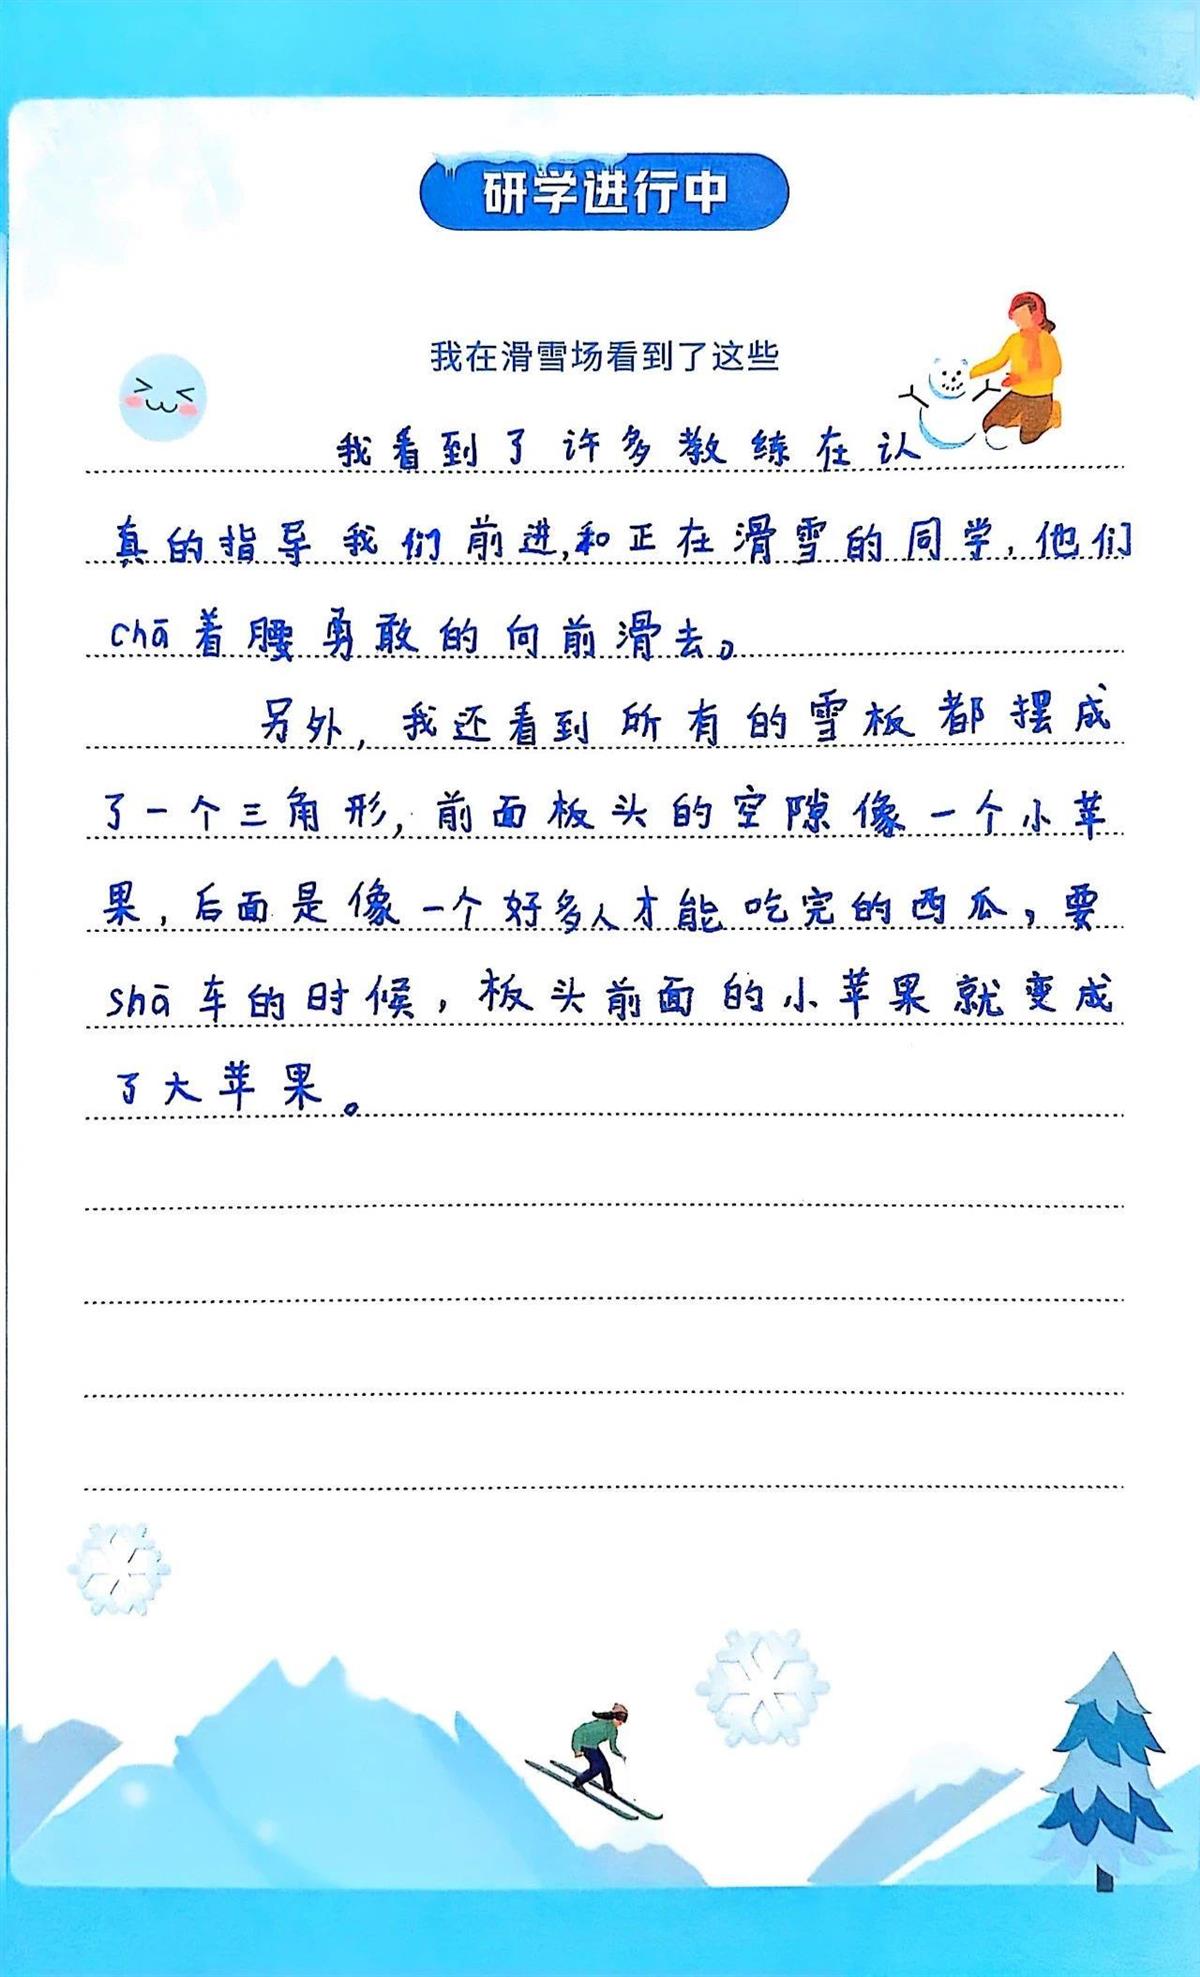 研学进行中
我在滑雪场看到了这些
我看到了许多教练在认
真的指导我们前进,和正在滑雪的同学,他们
chā着腰勇敢的向前滑去。
另外,我还看到所有的雪板都摆成
了一个三角形,前面板头的空隙像一个小苹
果,后面是像一个好多人才能吃完的西瓜,要
shā车的时候,板头前面的小苹果就变成
了大苹果。